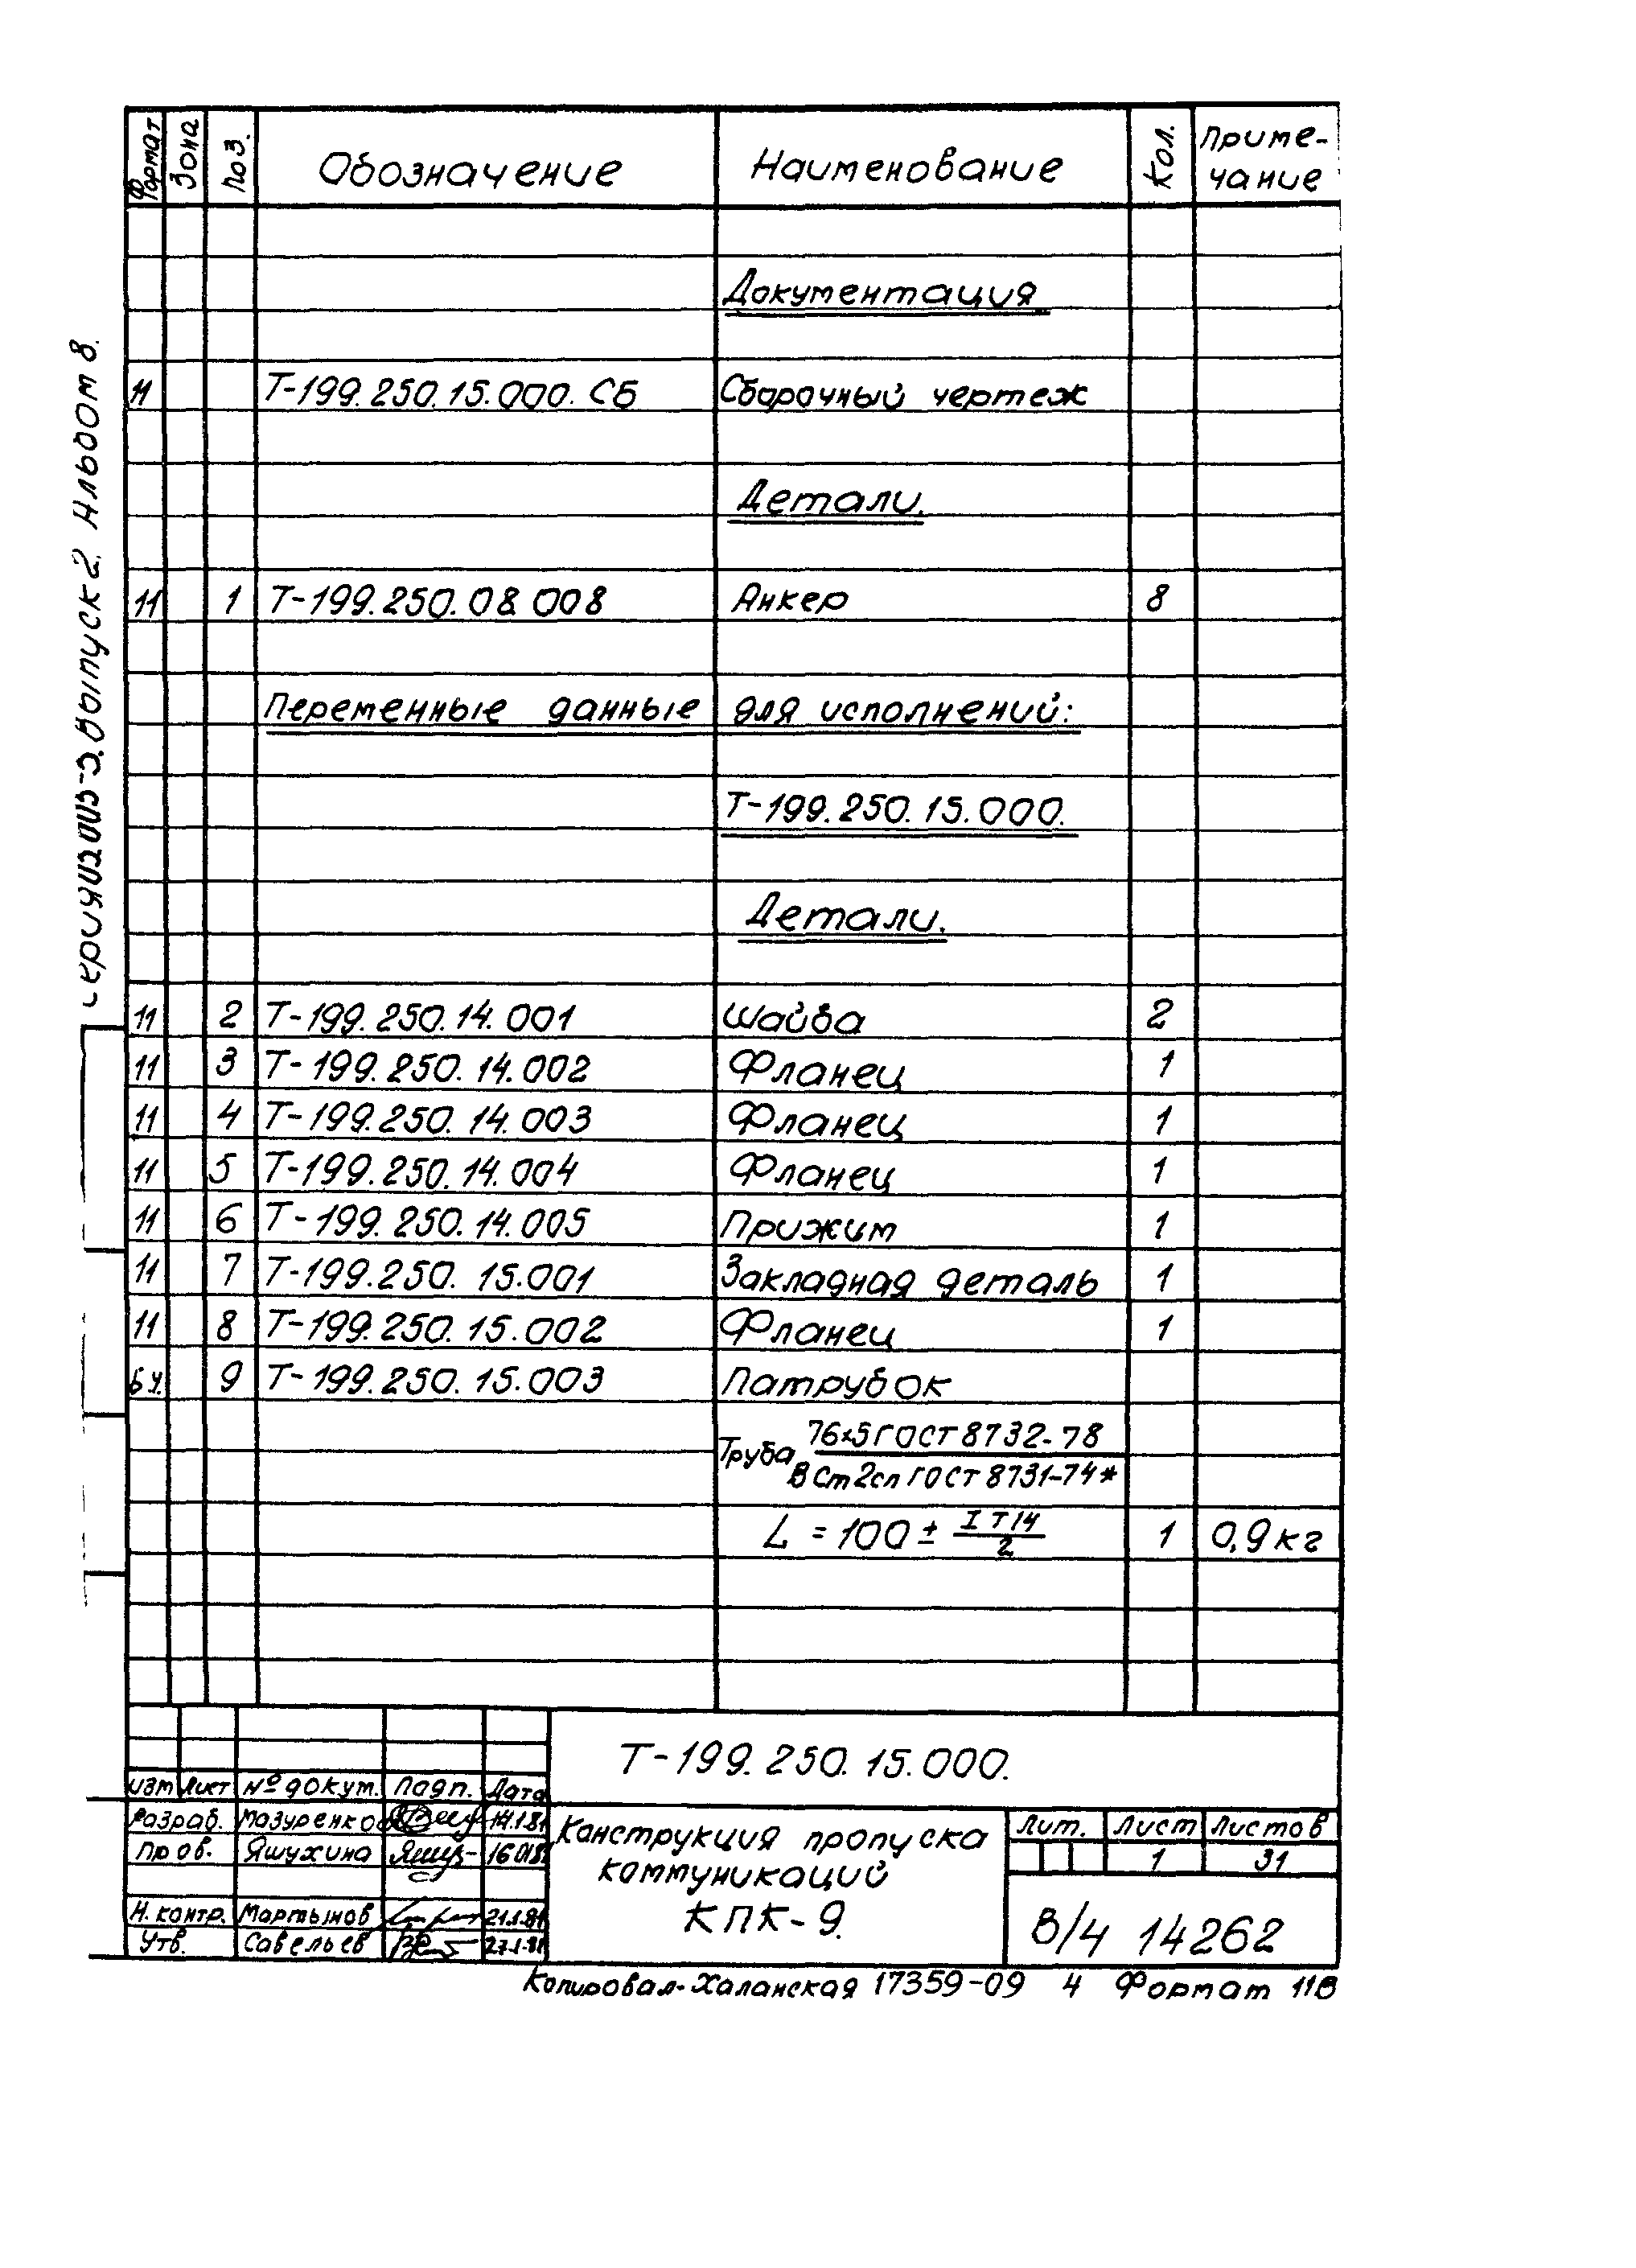 Формат Зона Поз. Обозначение Наименование Кол. Приме-
чание
Документация
11 Т-199.250.15.000.СБ Сборочный чертеж
Детали.
11 1 Т-199.250.08.008 Анкер 8
Переменные данные для исполнений:
Т-199.250.15.000.
Детали.
11 2 Т-199.250.14.001 Шайба 2
11 3 Т-199.250.14.002 Фланец 1
11 4 Т-199.250.14.003 Фланец 1
11 5 Т-199.250.14.004 Фланец 1
11 6 Т-199.250.14.005 Прижим 1
11 7 Т-199.250.15.001 Закладная деталь 1
11 8 Т-199.250.15.002 Фланец 1
БЧ. 9 Т-199.250.15.003 Патрубок
Труба 76х5 ГОСТ 8732-78
В Ст 2сп ГОСТ 8731-74*
L = 100 ± IT14/2 1 0,9кг
Выпуск 2. Альбом 8.
Т-199.250.15.000.
Изм Лист № докум. Подп. Дата
Разраб. Мазуренко 14.1.81
Пров. Яшухина 16.01.81
Н. контр. Мартынов 21.1.81
Утв. Савельев 27.1.81
Конструкция пропуска
коммуникаций
КПК-9.
Лит. Лист Листов
1 31
В/Ч 14262
Копировал-Халанская 17359-09 4 Формат 11В